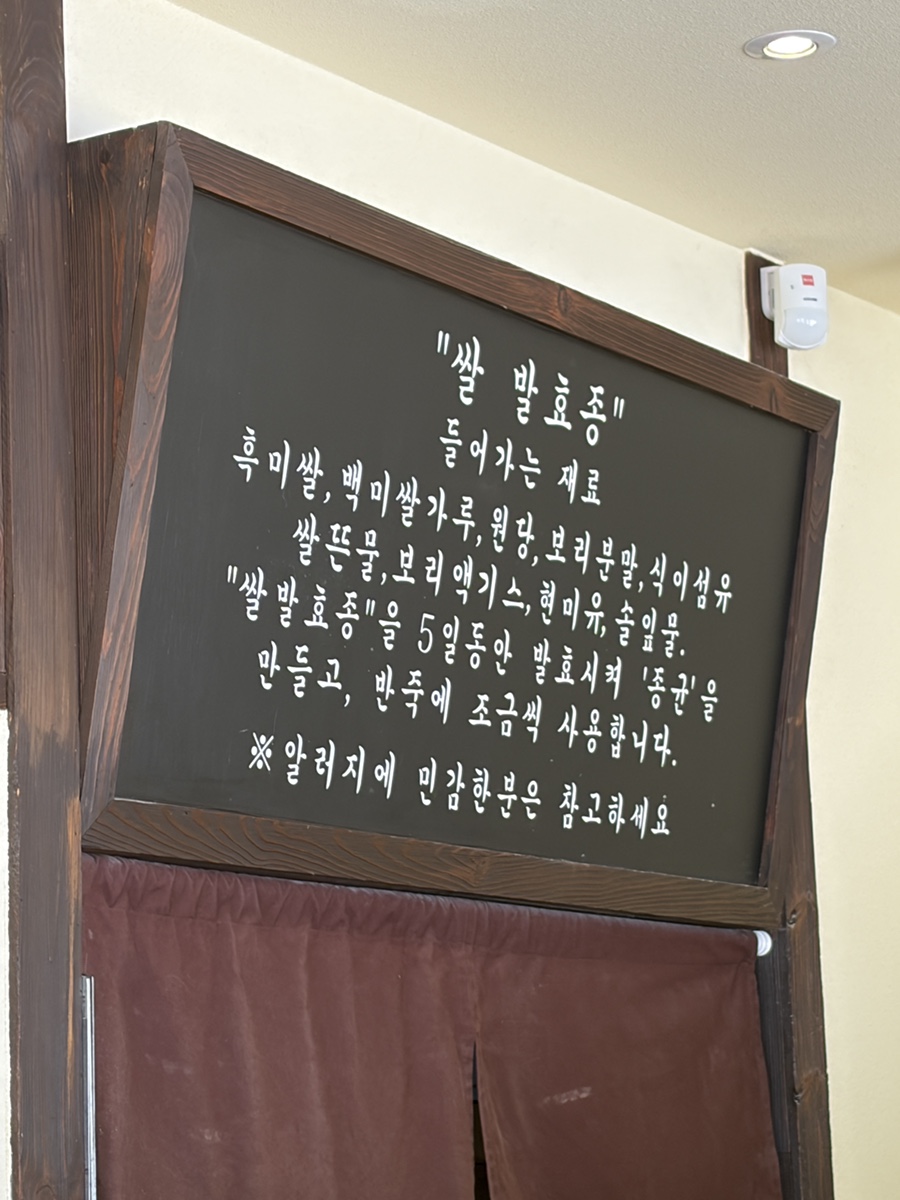 "쌀 발효종"
들어가는 재료
흑미쌀, 백미쌀가루, 원당, 보리분말, 식이섬유
쌀뜬물, 보리액기스, 현미유, 솔잎물.
"쌀발효종"을 5일동안 발효시켜 '종균'을
만들고, 반죽에 조금씩 사용합니다.
※알러지에 민감한분은 참고하세요